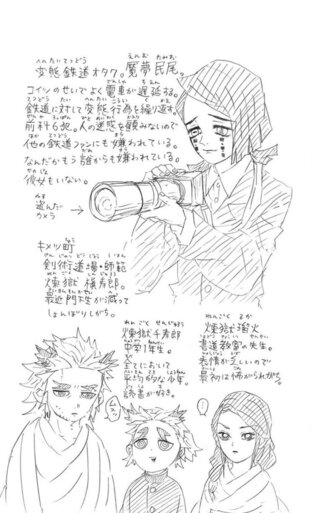 変態鉄道オタク。魘夢民尾。
コイツのせいでよく電車が遅延する。
鉄道に対して変態行為を繰り返す。
前科6犯。人の迷惑を顧みないので
他の鉄道ファンにも嫌われている。
なんだかもう誰からも嫌われている。
彼女もいない。
盗んだ
カメラ
キメツ町
剣術道場・師範
煉獄槇寿郎。
最近門下生が減って
しょんぼりしがち。
煉獄千寿郎
中等1年生。
全てにおいて
平均的な少年。
読書が好き。
煉獄瑠火
書道教室の先生。
表情が乏しいので
最初は怖がられがち。